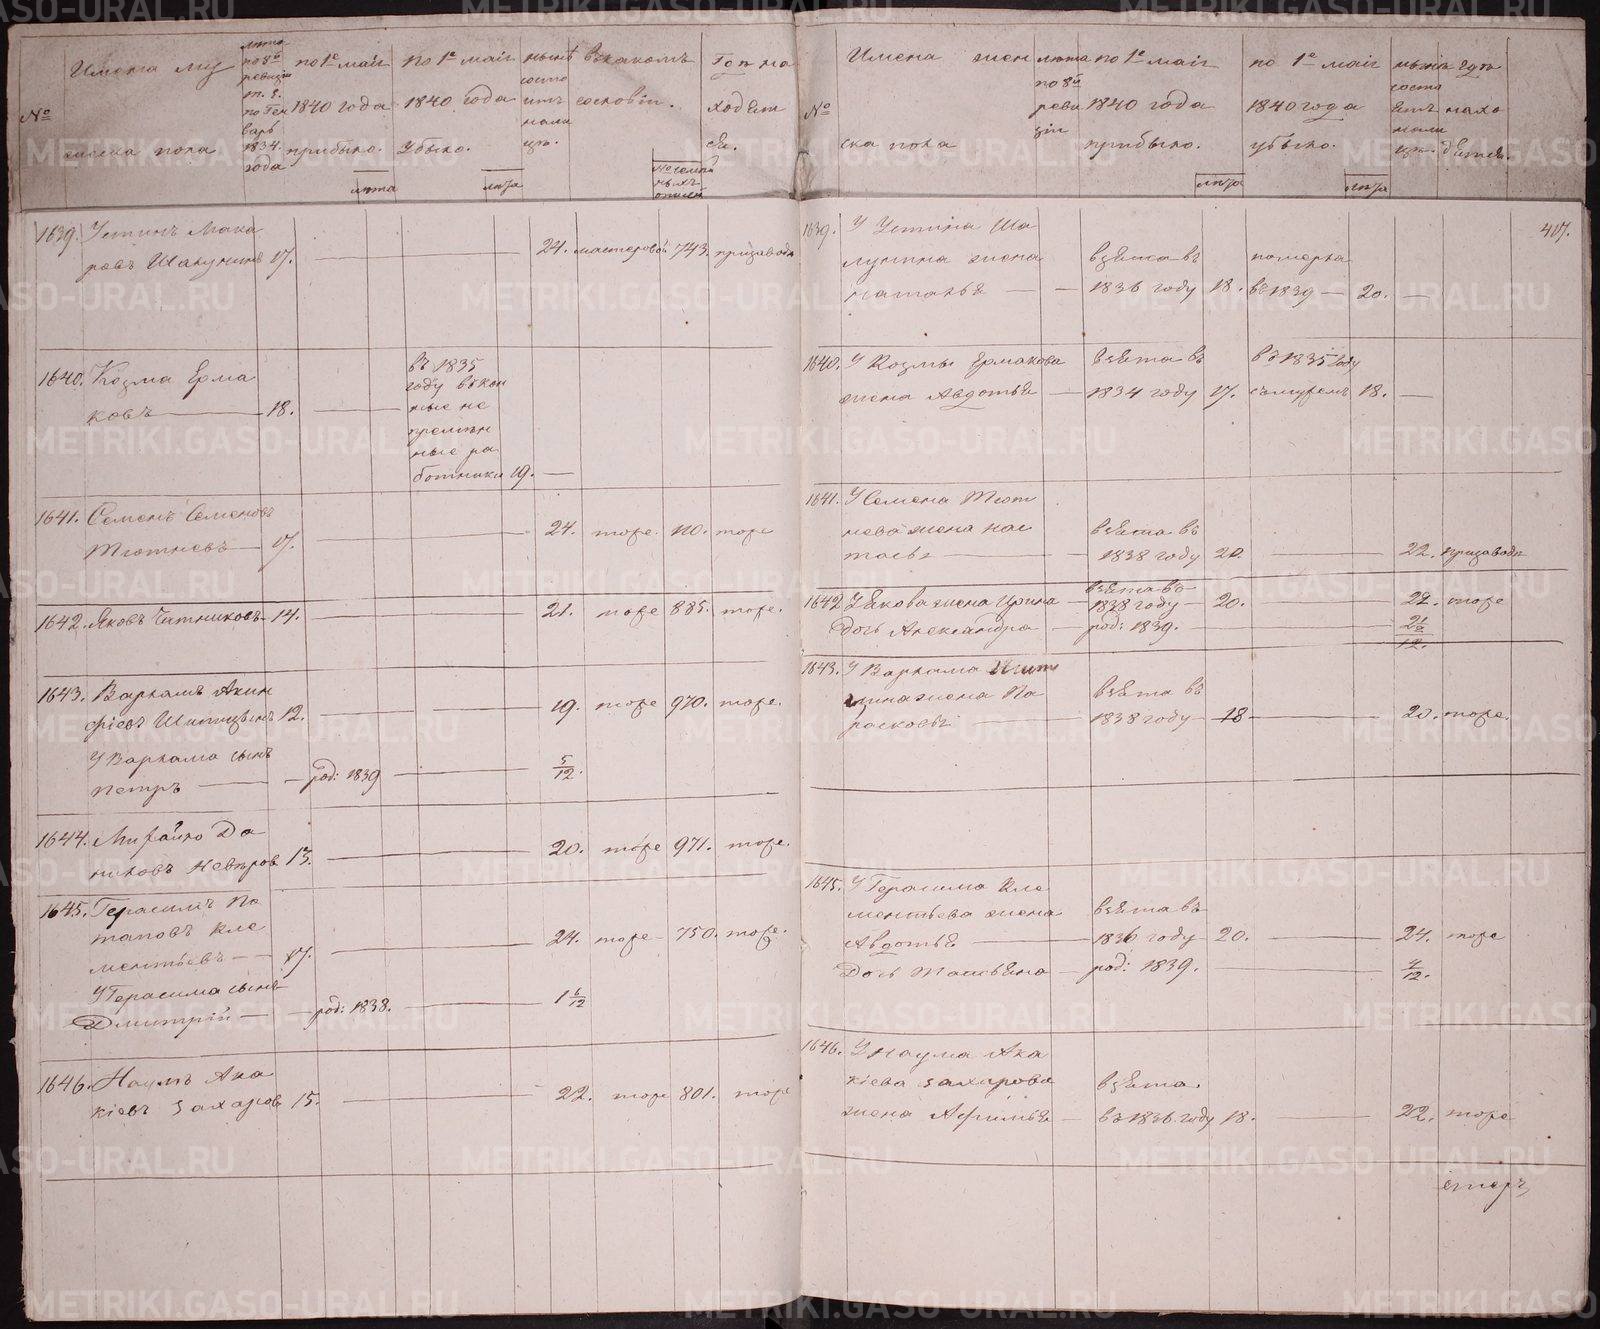 №
Имена му
жеска пола
лѣта
по 8й
ревизіи
т. е.
по Ген
варь
1834
года
по 1е маія
1840 года
прибыло.
лѣта
по 1е маія
1840 года
убыло.
лѣта
нынѣ
состо
итъ
нали
цо.
въ какомъ
сословіи.
Гдѣ на
ходит
ся.
1639. Устинъ Мака
ровъ Шалунинъ 17. 24. мастеровой 743. призаводѣ
1640. Козма Ерма
ковъ 18.
въ 1835
году въ кон
ные не
премѣн
ные ра
ботники 19.
1641. Семенъ Семеновъ
Тютневъ 17. 24. тоже 110. тоже
1642. Яковъ Ситниковъ 14. 21. тоже 885. тоже.
1643. Варламъ Акин
фіевъ Шипицынъ 12. 19. тоже 970. тоже.
У Варлама сынъ
Петръ род: 1839 5/12.
1644. Михайло Да
ниловъ Невѣров 13. 20. тоже 971. тоже.
1645. Герасимъ По
таповъ Кле
ментьевъ 17. 24. тоже 750. тоже.
У Герасима сынъ
Дмитрій род: 1838. 1 6/12
1646. Наумъ Ака
кіевъ Захаров 15. 22. тоже 801. тоже
№
Имена жен
ска пола
лѣта
по 8й
реви
зіи
по 1е маія
1840 года
прибыло.
лѣта
по 1е маія
1840 года
убыло.
лѣта
нынѣ
состо
итъ
нали
цо.
гдѣ
нахо
дится.
417.
1639. У Устина Ша
лунина жена взята въ померла
Наталья 1836 году 18. въ 1839 20.
1640. У Козмы Ермакова взята въ въ 1835 году
жена Авдотья 1834 году 17. съ мужемъ 18.
1641. У Семена Тют
нева жена Нас
тасья взята въ 1838 году 20. 22. призаводѣ
1642 У Якова жена Ирина взята въ 1838 году 20. 22. тоже
Дочь Александра род: 1839.
1643. У Варлама Шипи
цина жена Па взята въ
расковья 1838 году 18 20. тоже.
1645. У Герасима Кле
ментьева жена взята въ
Авдотья 1836 году 20. 24. тоже
Дочь Татьяна род: 1839. 4/12.
1646. У Наума Ака
кіева Захарова взята.
жена Афимья въ 1836 году 18. 22. тоже
METRIKI.GASO-URAL.RU